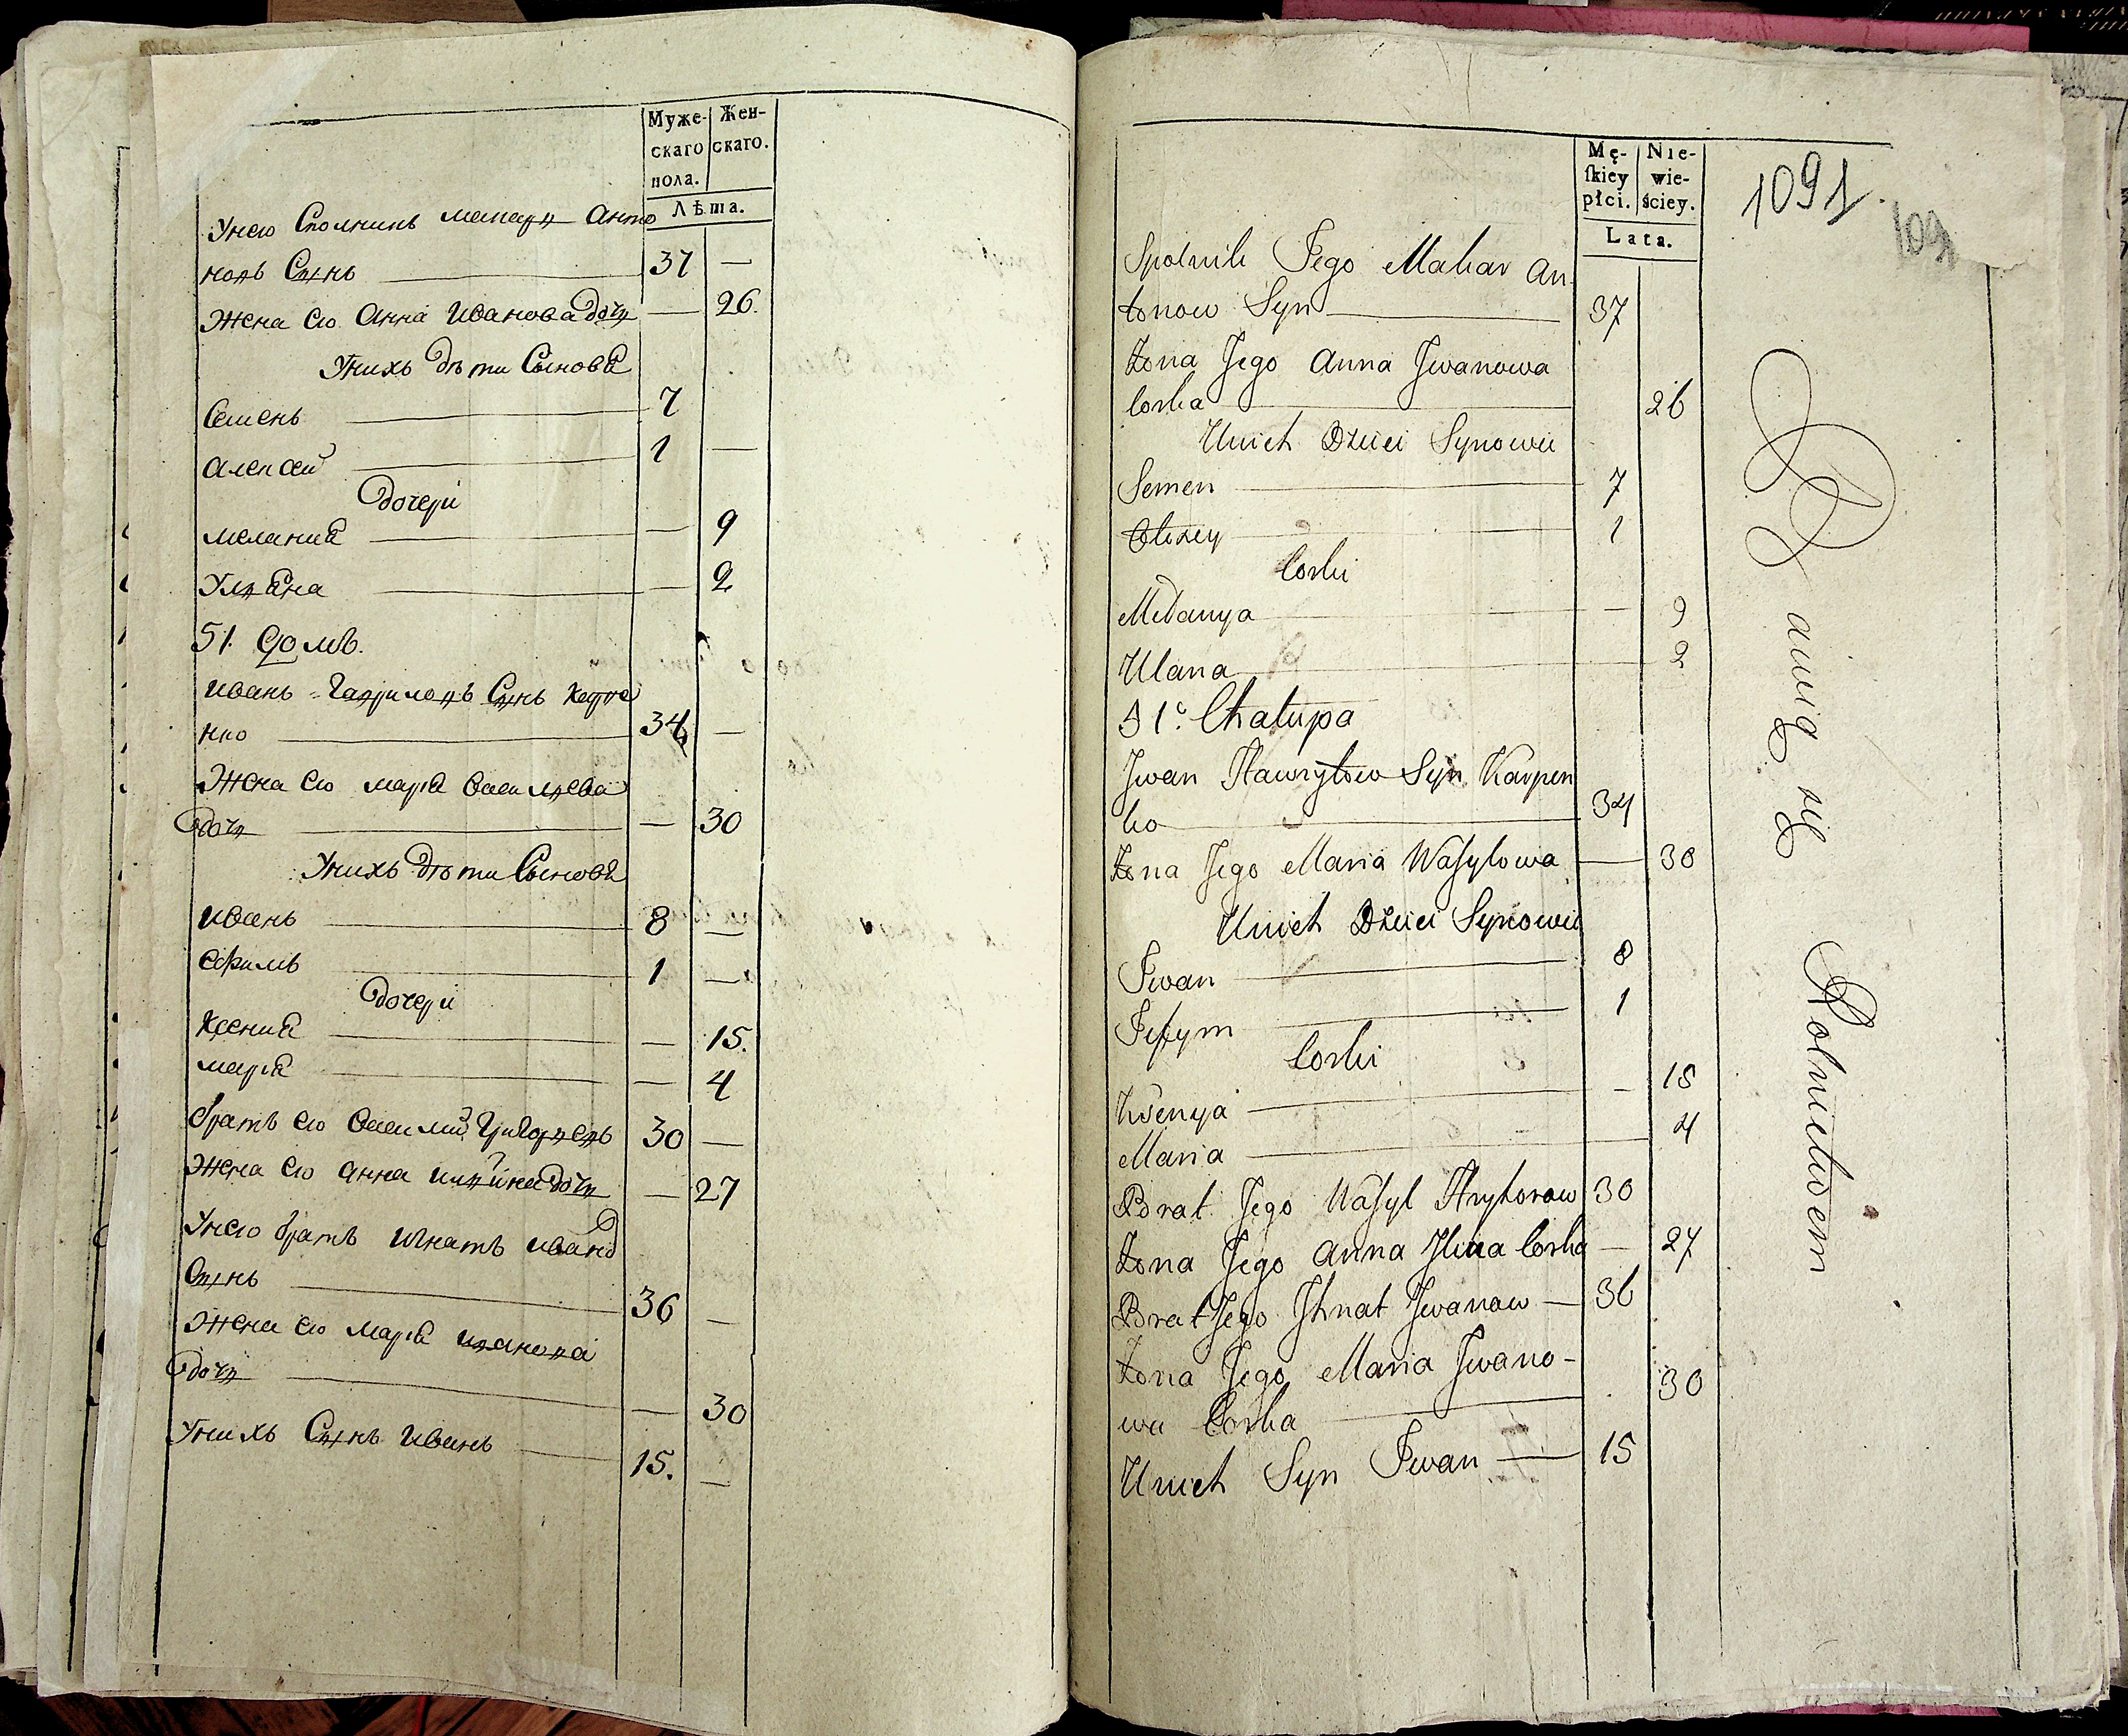 Муже-
скаго
пола.
Жен-
скаго.
Лѣта.
Унего Сполникъ макаръ Анто
новъ Сынъ — 37 —
Жена его Анна Иванова дочь — 26.
Унихъ дѣти Сыновя
Семенъ — 7
алексей — 1 —
дочери
мелания — 9
Уляна — 2
51. домъ.
иванъ Гавриловъ Сынъ Карпе
нко — 34 —
Жена его марія василева
дочь — 30
Унихъ дѣти Сыновя
иванъ — 8 —
Ефимъ — 1 —
дочери
Ксения — 15.
марія — 4
братъ его василий Григорьевъ 30 —
Жена его анна ильина дочь — 27
Унего братъ игнатъ ивано
Сынъ — 36 —
Жена его марія иванова
дочь — 30
Унихъ Сынъ иванъ — 15. —
Mę-
ſkiey
płci.
Nie-
wie-
ściey.
Lata.
1091.
109
Spolnik Jego Makar An
tonow Syn — 37
Żona Jego Anna Jwanowa
Corka — 26
Unich Dzieci Synowie
Semen — 7
Olexey — 1
Corki
Melanya — 9
Ulana — 2
51. Chałupa
Jwan Hawryłow Syn Karpen
ko — 34
Żona Jego Maria Waſylowa — 30
Unich Dzieci Synowie
Jwan — 8
Jefym — 1
Corki
Ksenya — 15
Maria — 4
Brat Jego Waſyl Hryhorow 30
Żona Jego Anna Jlina Corka — 27
Brat Jego Jhnat Jwanow — 36
Żona Jego Maria Jwano-
wa Corka — 30
Unich Syn Jwan — 15
Bawią się Rolnictwem